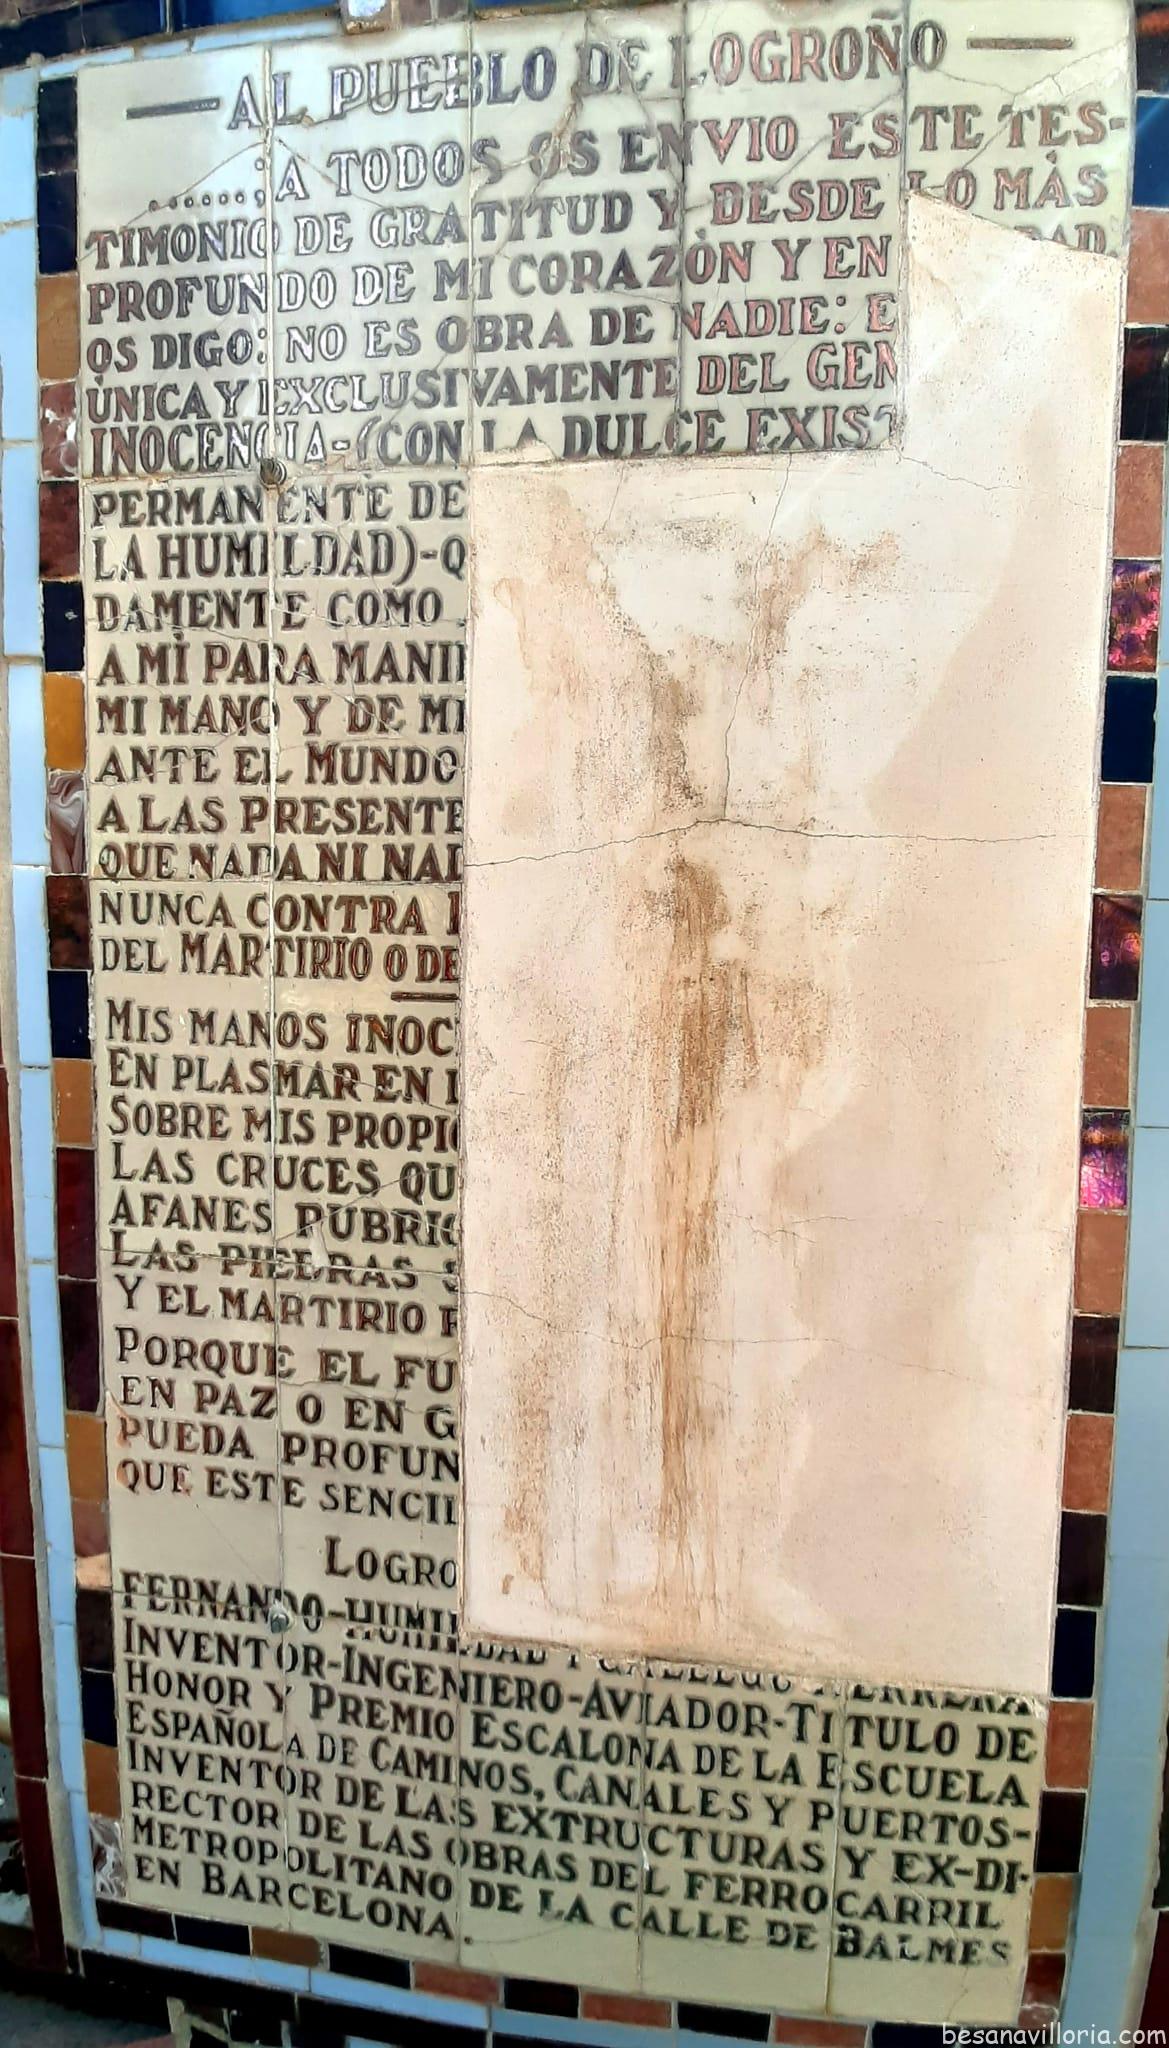 AL PUEBLO DE LOGROÑO
......;A TODOS OS ENVIO ESTE TES-
TIMONIO DE GRATITUD Y DESDE LO MÁS
PROFUNDO DE MI CORAZÓN Y EN
OS DIGO: NO ES OBRA DE NADIE: E
ÚNICA Y EXCLUSIVAMENTE DEL GEN
INOCENCIA-(CON LA DULCE EXIST
PERMANENTE DE
LA HUMILDAD)-Q
DAMENTE COMO
A MÌ PARA MANI
MI MANO Y DE MI
ANTE EL MUNDO
A LAS PRESENTE
QUE NADA NI NAD
NUNCA CONTRA
DEL MARTIRIO O DE
MIS MANOS INOC
EN PLASMAR EN L
SOBRE MIS PROPIO
LAS CRUCES QU
AFANES RUBRIC
LAS PIEDRAS S
Y EL MARTIRIO
PORQUE EL FU
EN PAZ O EN G
PUEDA PROFUN
QUE ESTE SENCIL
LOGRO
FERNANDO-HUMILDAD Y GALLEGO HERRERA
INVENTOR-INGENIERO-AVIADOR-TITULO DE
HONOR Y PREMIO ESCALONA DE LA ESCUELA
ESPAÑOLA DE CAMINOS, CANALES Y PUERTOS-
INVENTOR DE LAS EXTRUCTURAS Y EX-DI-
RECTOR DE LAS OBRAS DEL FERROCARRIL
METROPOLITANO DE LA CALLE DE BALMES
EN BARCELONA.
besanavilloria.com